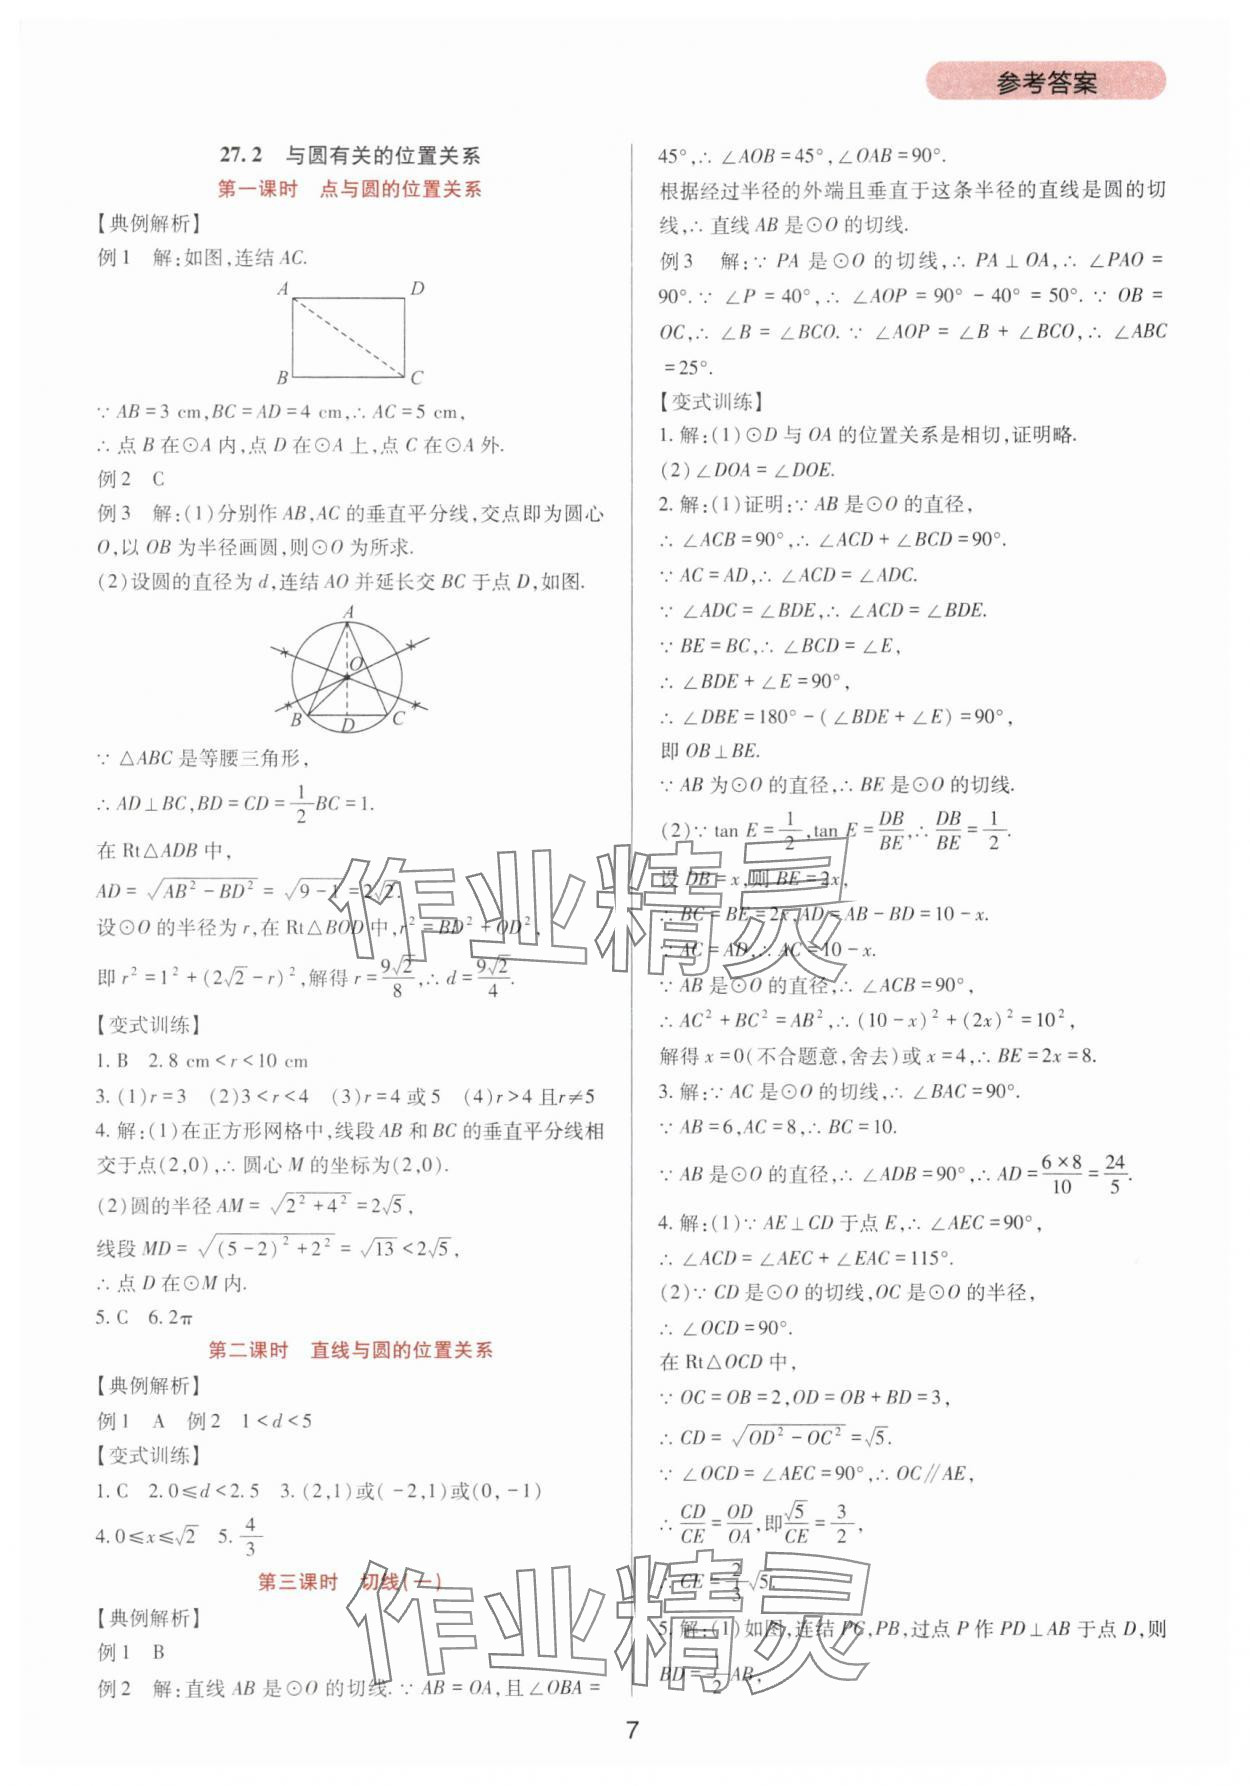 参考答案
27.2　与圆有关的位置关系
第一课时　点与圆的位置关系
【典例解析】
例1　解:如图,连结AC.
A D
B C
∵ AB=3 cm,BC=AD=4 cm,∴ AC=5 cm,
∴ 点B在⊙A内,点D在⊙A上,点C在⊙A外.
例2　C
例3　解:(1)分别作AB,AC的垂直平分线,交点即为圆心
O,以OB为半径画圆,则⊙O为所求.
(2)设圆的直径为d,连结AO并延长交BC于点D,如图.
A
O
B D C
∵ △ABC是等腰三角形,
∴ AD⊥BC,BD=CD=1/2BC=1.
在Rt△ADB中,
AD=√(AB²-BD²)=√(9-1)=2√2.
设⊙O的半径为r,在Rt△BOD中,r²=BD²+OD²,
即r²=1²+(2√2-r)²,解得r=9√2/8,∴ d=9√2/4.
【变式训练】
1. B　2. 8 cm<r<10 cm
3. (1)r=3　(2)3<r<4　(3)r=4或5　(4)r>4且r≠5
4. 解:(1)在正方形网格中,线段AB和BC的垂直平分线相
交于点(2,0),∴ 圆心M的坐标为(2,0).
(2)圆的半径AM=√(2²+4²)=2√5,
线段MD=√((5-2)²+2²)=√13<2√5,
∴ 点D在⊙M内.
5. C　6. 2π
第二课时　直线与圆的位置关系
【典例解析】
例1　A　例2　1<d<5
【变式训练】
1. C　2. 0≤d<2.5　3. (2,1)或(-2,1)或(0,-1)
4. 0≤x≤√2　5. 4/3
第三课时　切线(一)
【典例解析】
例1　B
例2　解:直线AB是⊙O的切线.∵ AB=OA,且∠OBA=
45°,∴ ∠AOB=45°,∠OAB=90°.
根据经过半径的外端且垂直于这条半径的直线是圆的切
线,∴ 直线AB是⊙O的切线.
例3　解:∵ PA是⊙O的切线,∴ PA⊥OA,∴ ∠PAO=
90°.∵ ∠P=40°,∴ ∠AOP=90°-40°=50°.∵ OB=
OC,∴ ∠B=∠BCO.∵ ∠AOP=∠B+∠BCO,∴ ∠ABC
=25°.
【变式训练】
1. 解:(1)⊙D与OA的位置关系是相切,证明略.
(2)∠DOA=∠DOE.
2. 解:(1)证明:∵ AB是⊙O的直径,
∴ ∠ACB=90°,∴ ∠ACD+∠BCD=90°.
∵ AC=AD,∴ ∠ACD=∠ADC.
∵ ∠ADC=∠BDE,∴ ∠ACD=∠BDE.
∵ BE=BC,∴ ∠BCD=∠E,
∴ ∠BDE+∠E=90°,
∴ ∠DBE=180°-(∠BDE+∠E)=90°,
即OB⊥BE.
∵ AB为⊙O的直径,∴ BE是⊙O的切线.
(2)∵ tan E=1/2,tan E=DB/BE,∴ DB/BE=1/2.
设DB=x,则BE=2x,
∴ BC=BE=2x,AD=AB-BD=10-x.
∵ AC=AD,∴ AC=10-x.
∵ AB是⊙O的直径,∴ ∠ACB=90°,
∴ AC²+BC²=AB²,∴ (10-x)²+(2x)²=10²,
解得x=0(不合题意,舍去)或x=4,∴ BE=2x=8.
3. 解:∵ AC是⊙O的切线,∴ ∠BAC=90°.
∵ AB=6,AC=8,∴ BC=10.
∵ AB是⊙O的直径,∴ ∠ADB=90°,∴ AD=6×8/10=24/5.
4. 解:(1)∵ AE⊥CD于点E,∴ ∠AEC=90°,
∴ ∠ACD=∠AEC+∠EAC=115°.
(2)∵ CD是⊙O的切线,OC是⊙O的半径,
∴ ∠OCD=90°.
在Rt△OCD中,
∵ OC=OB=2,OD=OB+BD=3,
∴ CD=√(OD²-OC²)=√5.
∵ ∠OCD=∠AEC=90°,∴ OC∥AE,
∴ CD/CE=OD/OA,即√5/CE=3/2,
∴ CE=2/3√5.
5. 解:(1)如图,连结PC,PB,过点P作PD⊥AB于点D,则
BD=1/2AB,
7
作业精灵
作业精灵